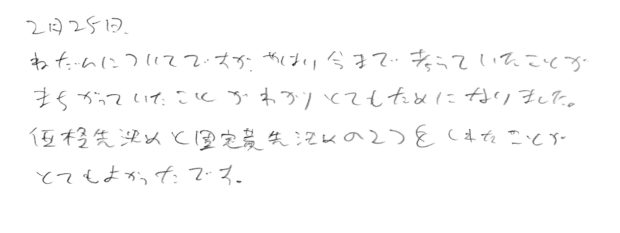 2月25日.
ねだんについてですが、やはり今まで考えていたことが
まちがっていたことがわかりとてもためになりました。
価格先決めと固定費先決めの2つをしれたことが
とてもよかったです。